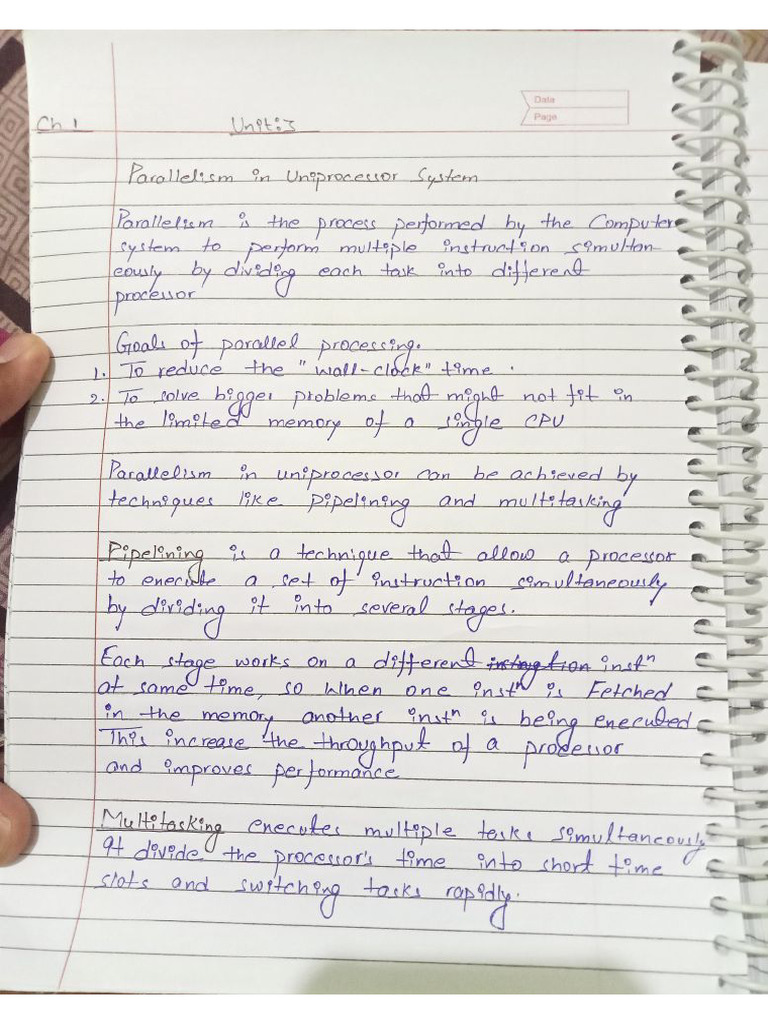 Date
Page
Ch 1 Unit:3
Parallelism in Uniprocessor System
Parallelism is the process performed by the Computer
system to perform multiple instruction simultan-
eously by dividing each task into different
processor
Goals of parallel processing.
1. To reduce the "wall-clock" time.
2. To solve bigger problems that might not fit in
the limited memory of a single CPU
Parallelism in uniprocessor can be achieved by
techniques like pipelining and multitasking
Pipelining is a technique that allow a processor
to execute a set of instruction simultaneously
by dividing it into several stages.
Each stage works on a different instⁿ
at same time, so when one instⁿ is Fetched
in the memory another instⁿ is being executed
This increase the throughput of a processor
and improves performance
Multitasking executes multiple tasks simultaneously
It divide the processor's time into short time
slots and switching tasks rapidly.